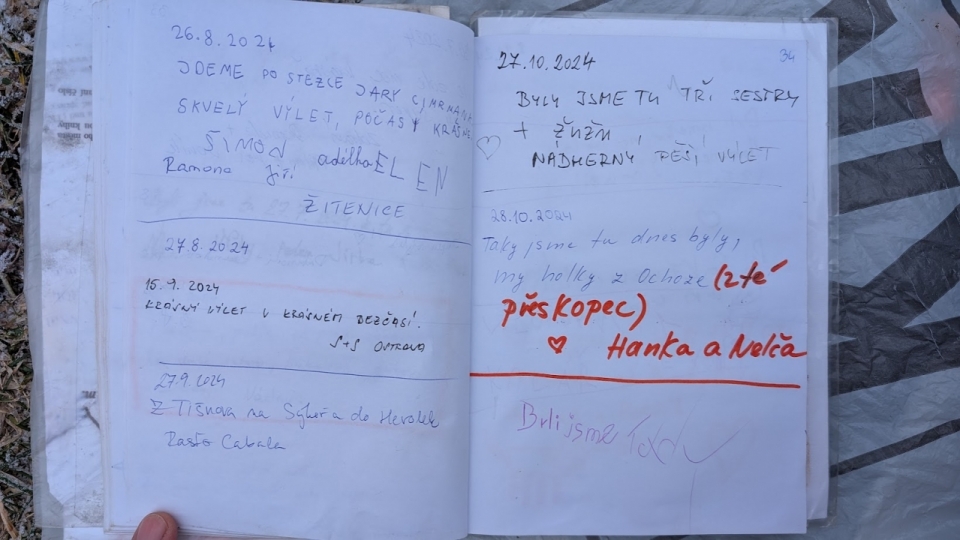 26.8.2024
JDEME PO STEZCE JÁRY CIMRMANA
SKVELÝ VÝLET, POČASÍ KRÁSNÉ
ŠIMON adélka ELEN
Ramona Jiří
ŽITENICE
27.8.2024
15.9.2024
KRÁSNÝ VÝLET V KRÁSNÉM BEZČASÍ.
S+S OSTRAVA
27.9.2024
Z Tišnova na Sýkoř a do
Rasťo Cabala
34
27.10.2024
BYLY JSME TU TŘI SESTRY
+
NÁDHERNÝ PĚŠÍ VÝLET
28.10.2024
Taky jsme tu dnes byly,
my holky z Ochoze (z té
přes kopec)
Hanka a Nelča
Byli jsme Tady